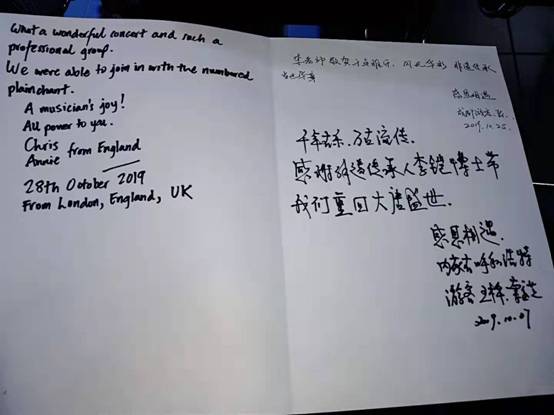 What a wonderful concert and such a
professional group.
We were able to join in with the numbered
plainchant.
A musician's joy!
All power to you.
Chris
Annie from England
28th October 2019
From London, England, UK
感恩相遇
2019.10.25.
千年古乐、万古流传.
感谢非遗传承人李铠博士带
我们重回大唐盛世.
感恩相遇.
内蒙古呼和浩特
游客王
2019.10.07